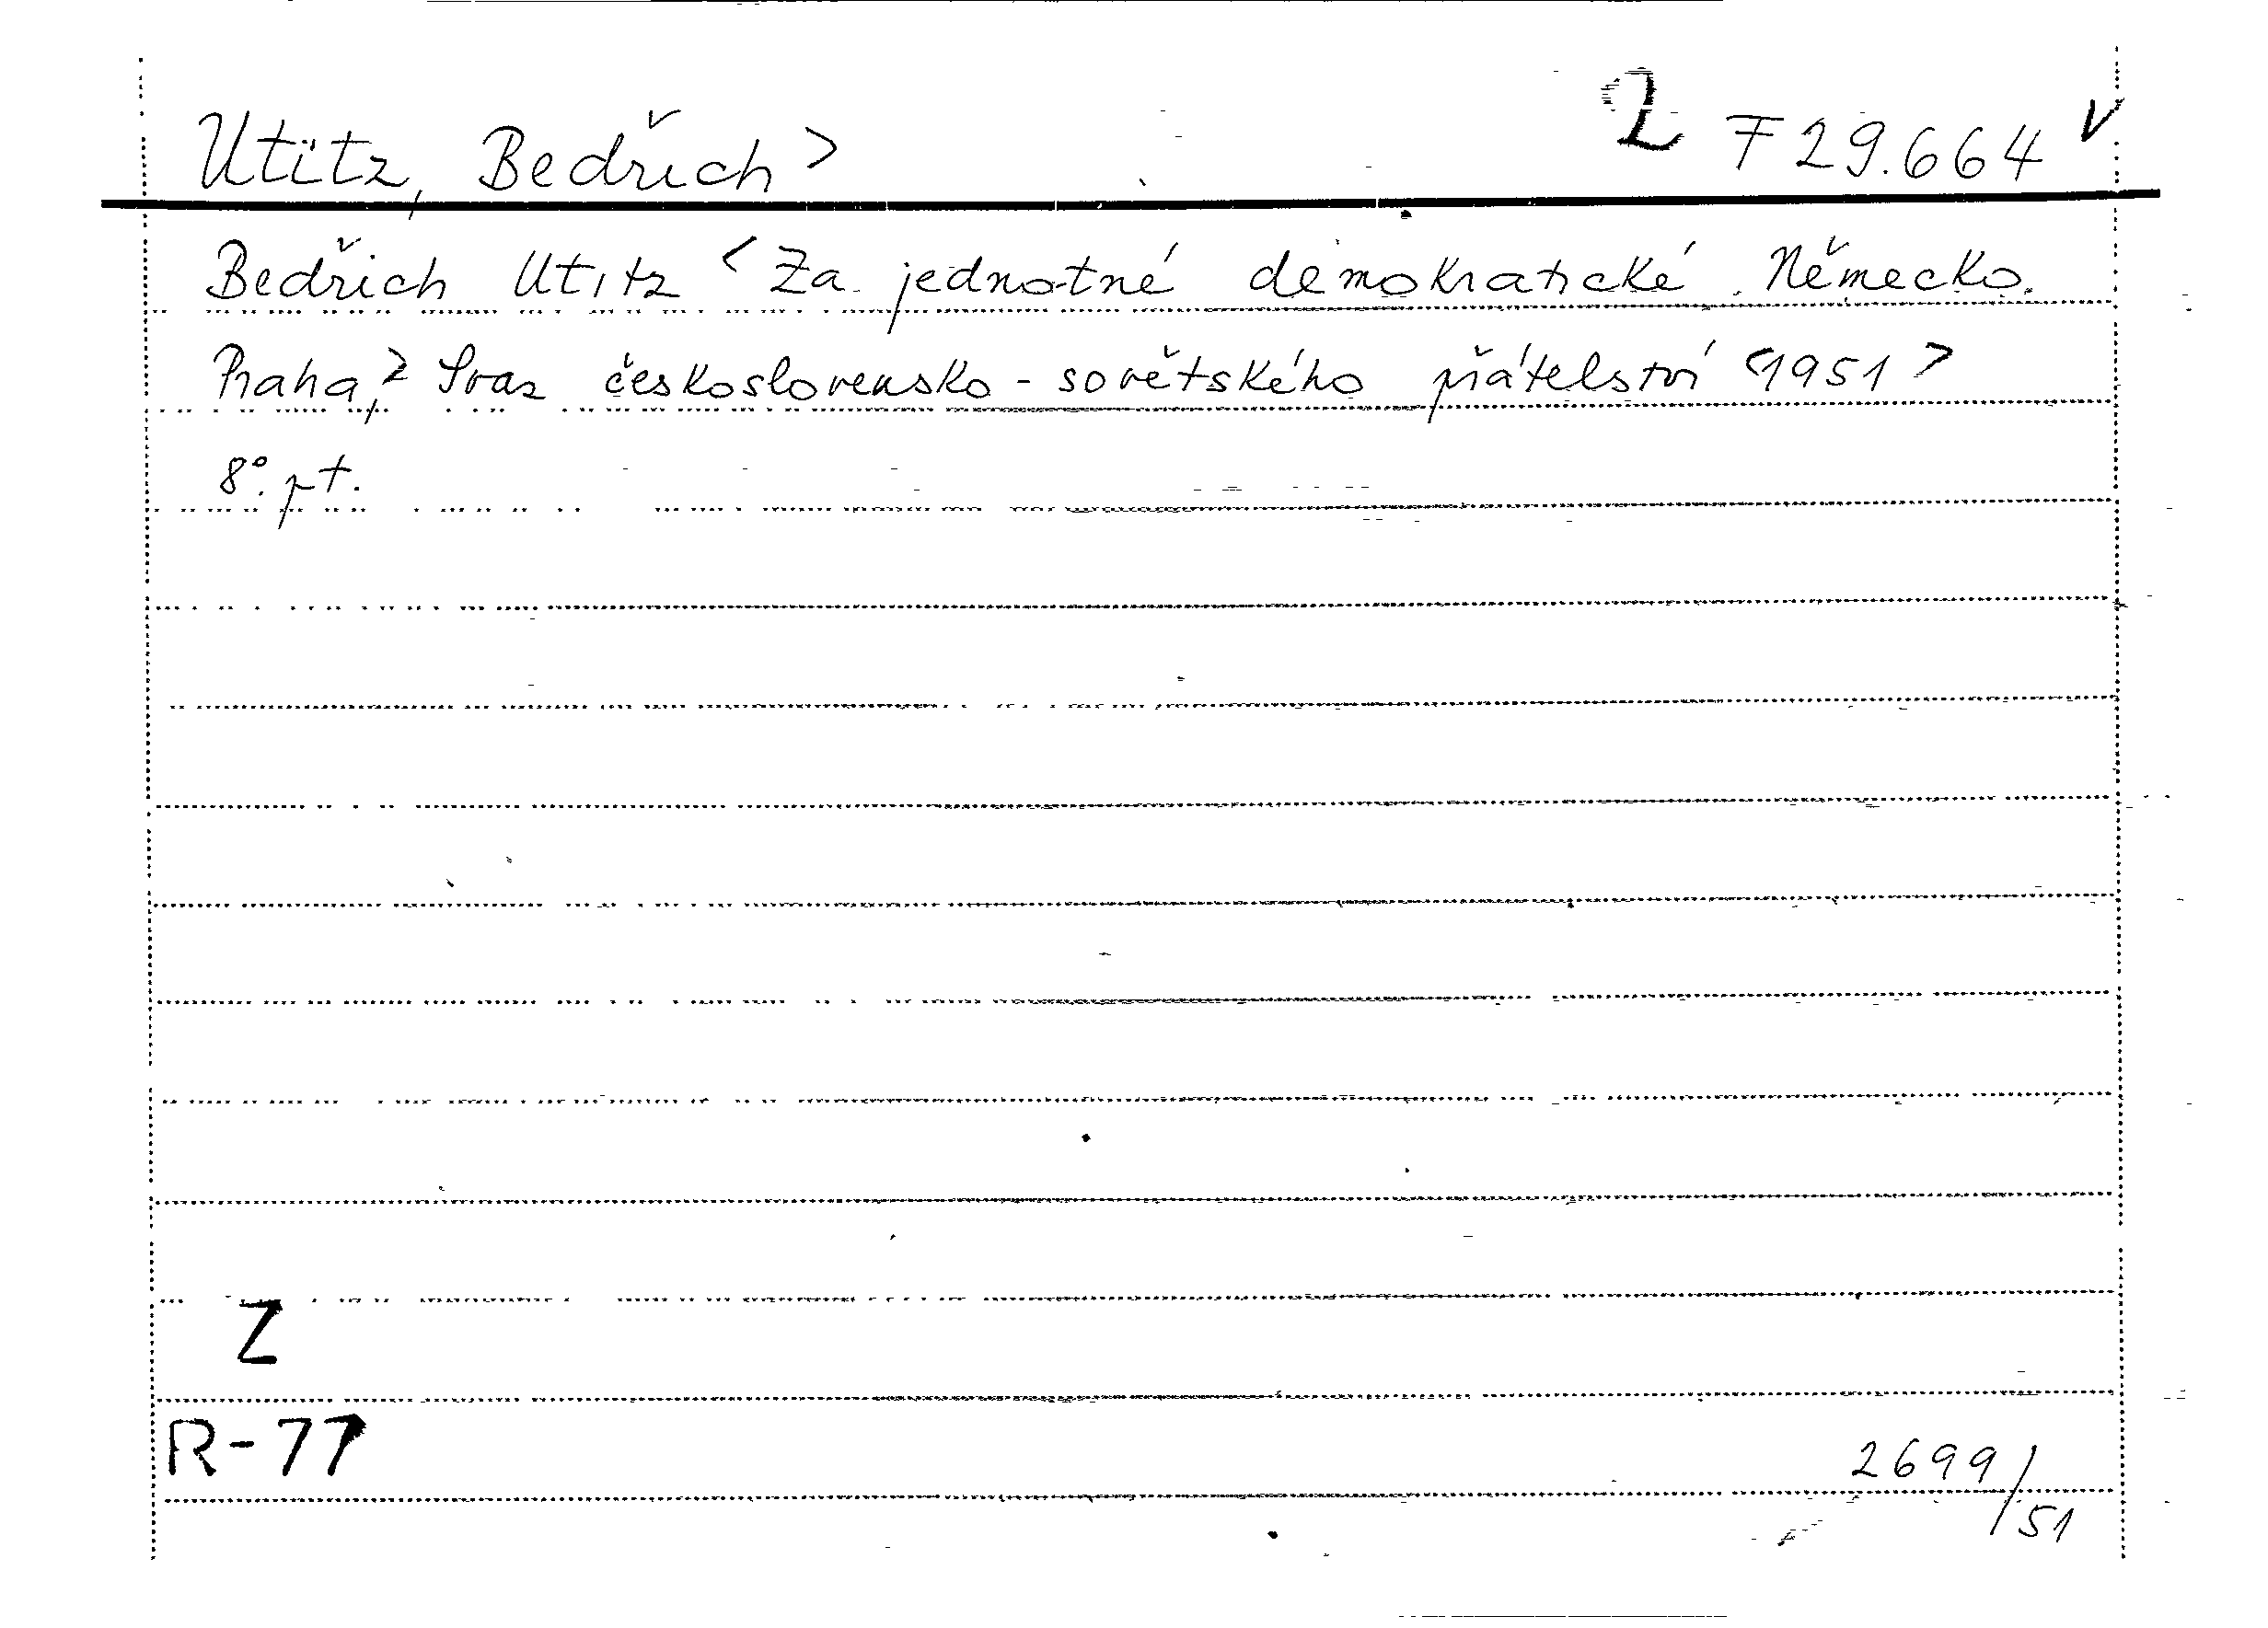 Utitz, Bedřich > 2 F 29.664 v
Bedřich Utitz < Za jednotné demokratické Německo.
Praha, > Svaz československo-sovětského přátelství <1951>
8°. pt.
Z
R-77
2699/51